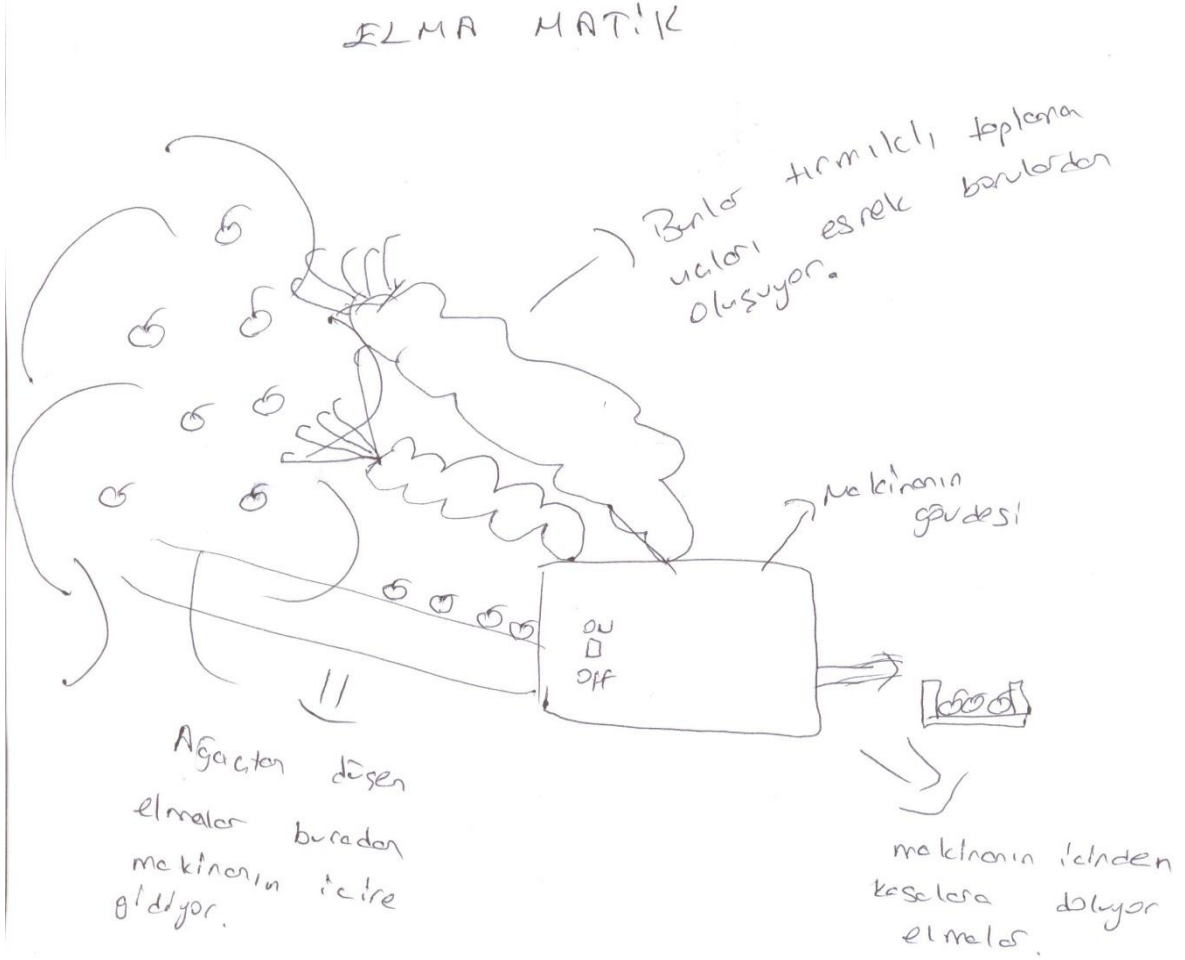 ELMA MATİK
Bunlar tırmıklı, toplama
uçları esnek borulardan
oluşuyor.
Makinanın
gövdesi
ON
OFF
Ağaçtan düşen
elmalar buradan
makinanın içine
gidiyor.
makinanın içinden
kasalara doluyor
elmalar.